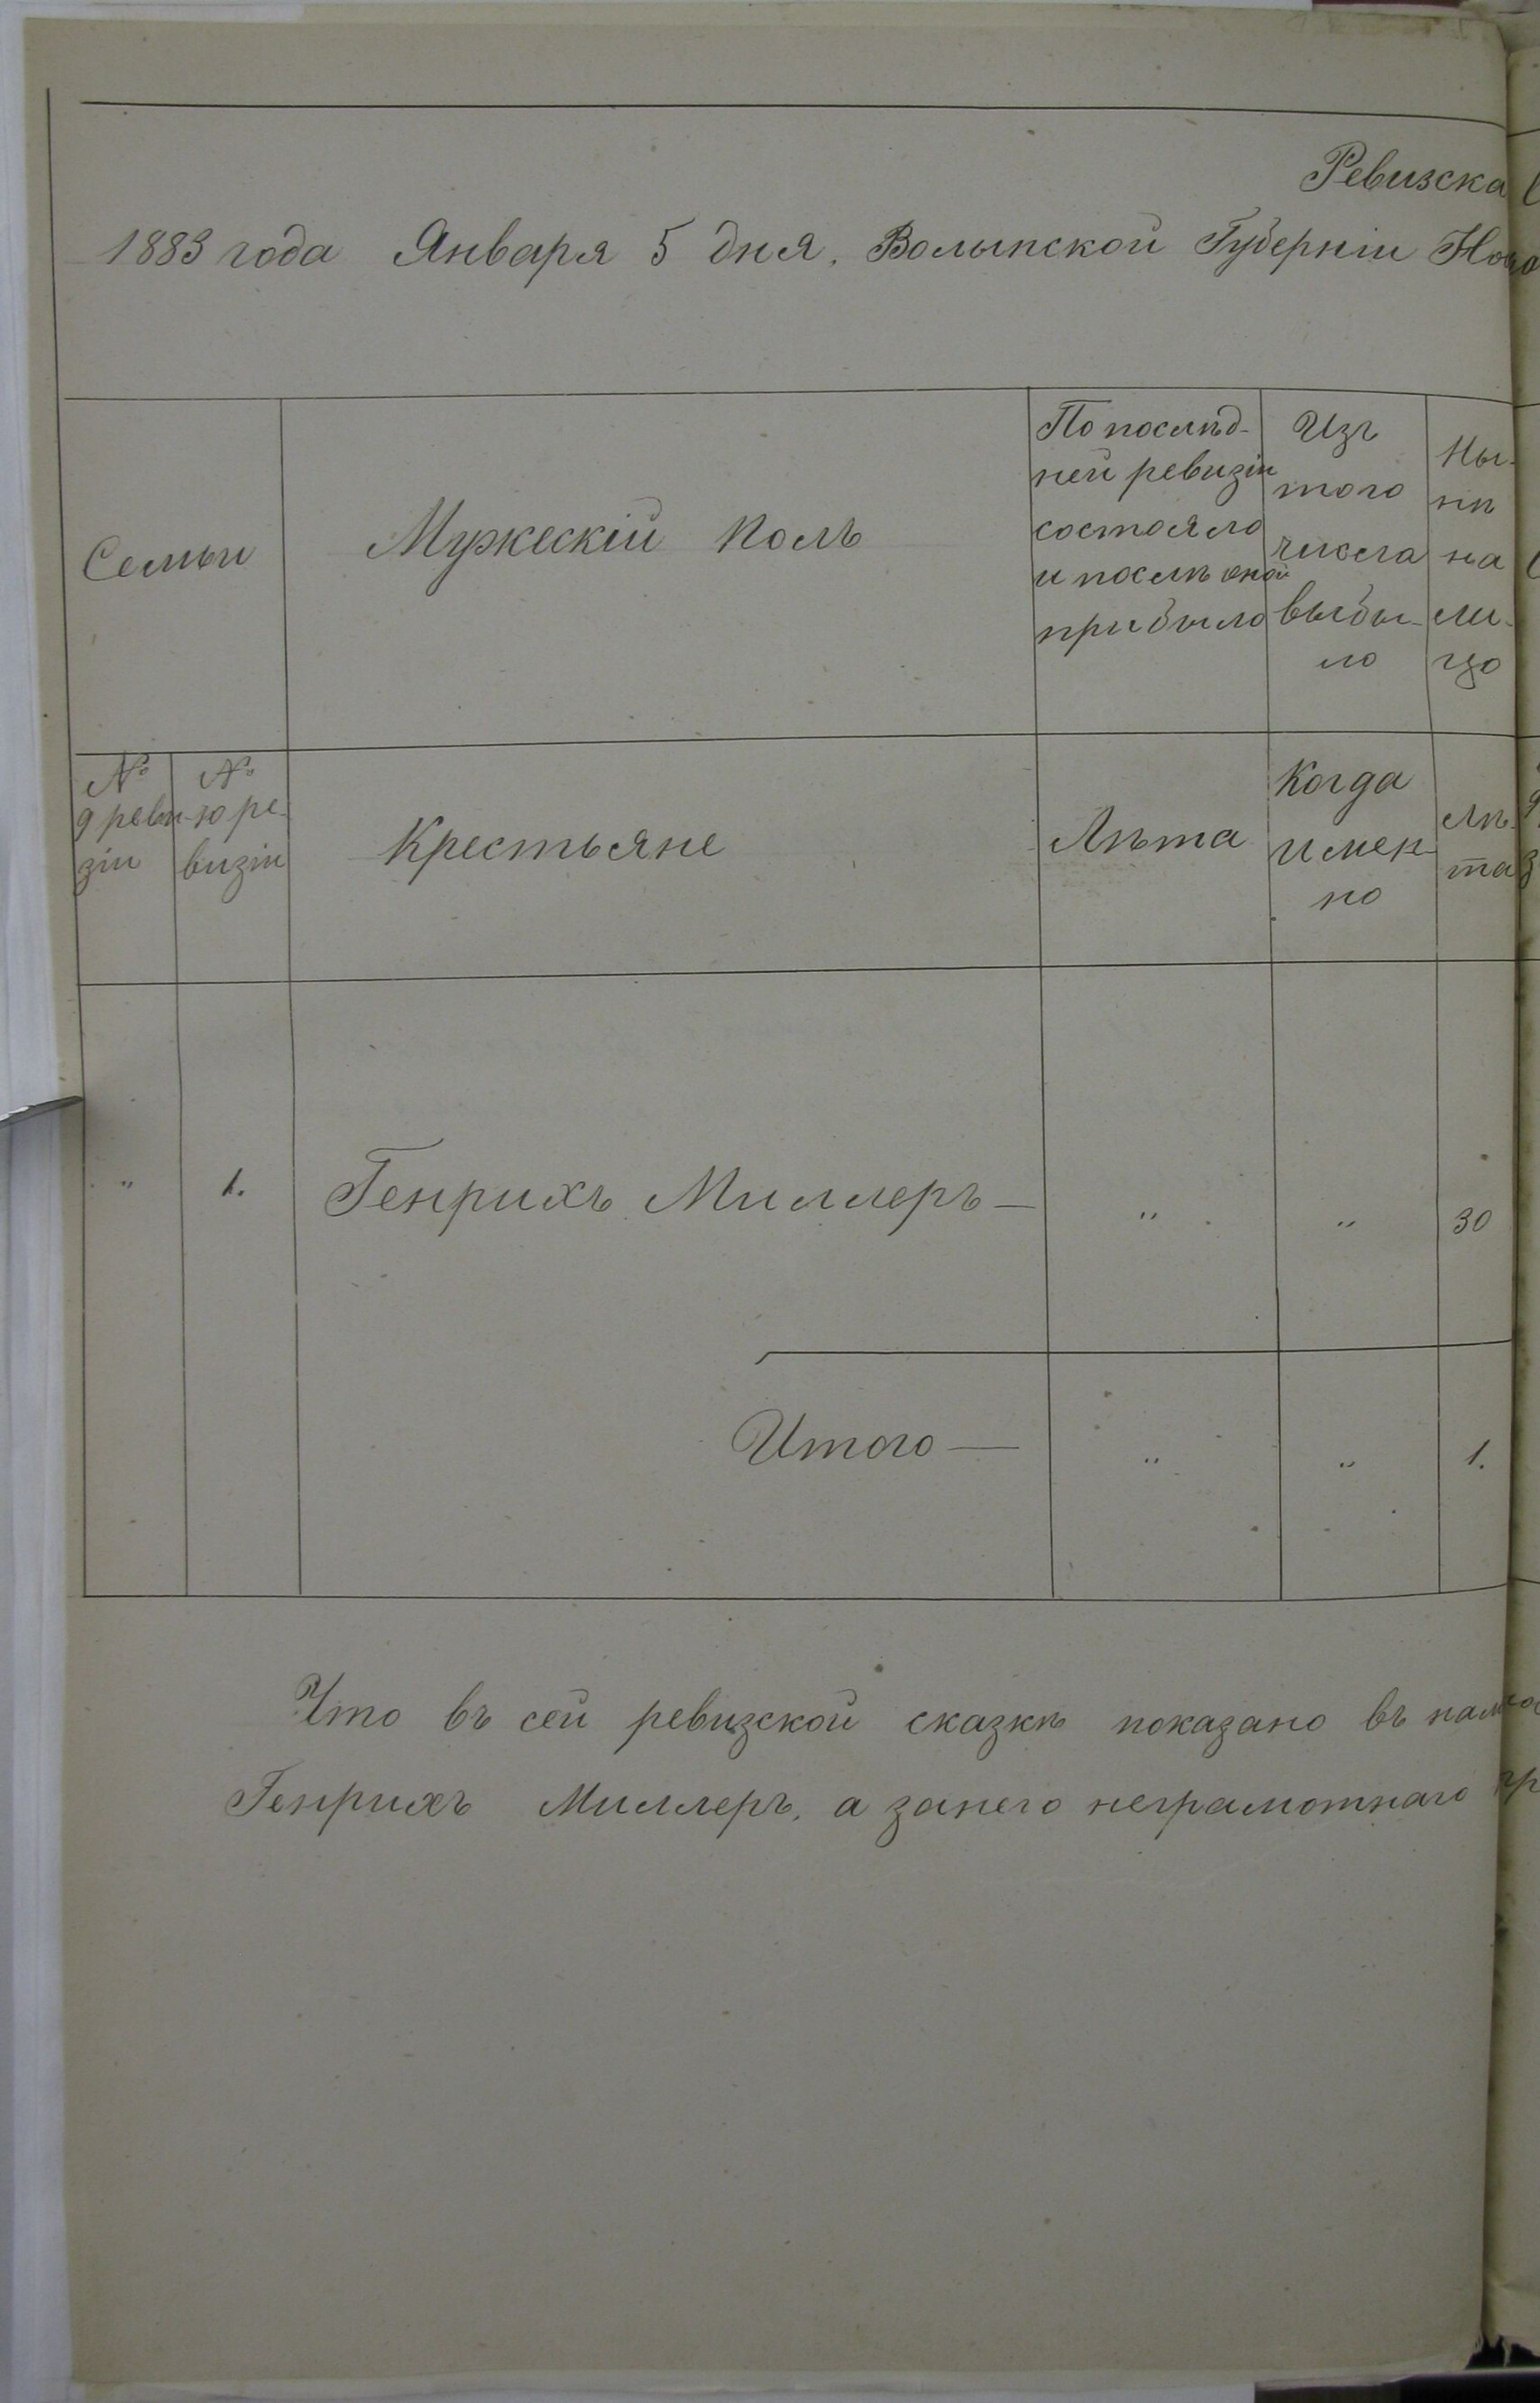 Ревизска
1883 года Января 5 дня, Волынской Губерніи Ново
Семьи
Мужескій полъ
По послѣд-
ней ревизіи
состояло
и послѣ оной
прибыло
Изъ
того
числа
выбы-
ло
Ны-
нѣ
на
ли-
цо
№
9 реви-
зіи
№
10 ре-
визіи
Крестьяне
Лѣта
Когда
имен-
но
Лѣ-
та
" 1. Генрихъ Миллеръ — " " 30
Итого — " " 1.
Что въ сей ревизской сказкѣ показано въ
Генрихъ Миллеръ, а занего неграмотнаго